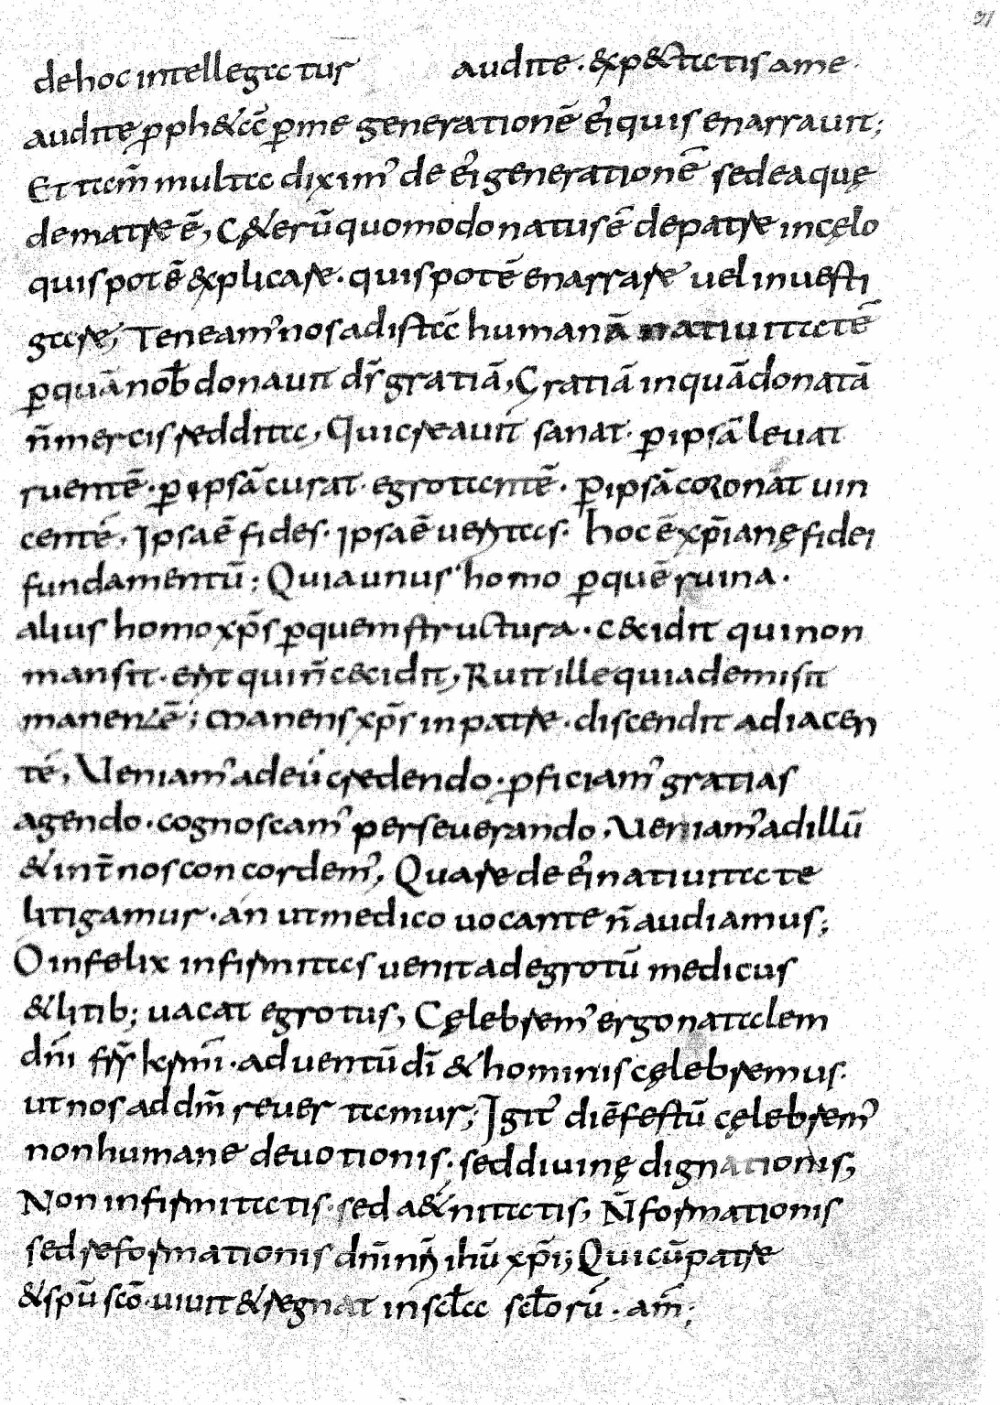 91
de hoc intellegatur audite · & expectatis a me ·
audite pph&ā p̄ me generationē ei' quis enarrauit;
Et tam̄ multa dixim' de ei' generatione sed ea quę
de matre ē, C&erū quomodo natus ē de patre in cęlo
quis potē explicare · quis potē enarrare uel inuesti
gare; Teneam' nos ad istā humanā natiuitatē
p̄quā nob̄ donauit dr̄ gratiā, Gratiā inquā donatā
n̄ mercis reddita, Qui creauit sanat · p̄ ipsā leuat
ruentē · p̄ ipsā curat · egrotantē · p̄ ipsā coronat uin
centē, Ipsa ē fides · ipsa ē ueritas · hoc ē xp̄ianę fidei
fundamentū; Quia unus homo p̄ quē ruina ·
alius homo xp̄s p̄ quem structura · c&idit qui non
mansit · erit qui n̄ c&idit, Ruit ille quia demisit
manentē; Manens xp̄s in patre · discendit ad iacen
tē, Ueniam' ad eū credendo · p̄ficiam' gratias
agendo · cognoscam' perseuerando, Ueniam' ad illū
& int̄ nos concordem', Quare de ei' natiuitate
litigamur · an ut medico uocante n̄ audiamus;
O infelix infirmitas uenit ad egrotū medicus
& litib; uacat egrotus, Cęlebrem' ergo natalem
dn̄i fr̄s kr̄mi · aduentū dī & hominis cęlebremus ·
ut nos ad dn̄m reuertamur; Igit' diē festū cęlebrem'
non humane deuotionis · sed diuinę dignationis,
Non infirmitatis · sed a&nitatis, N̄ formationis
sed reformationis dn̄i nr̄i ihū xp̄i; Qui cū patre
& spū scō · uiuit & regnat in scl̄a scl̄orū · am̄;